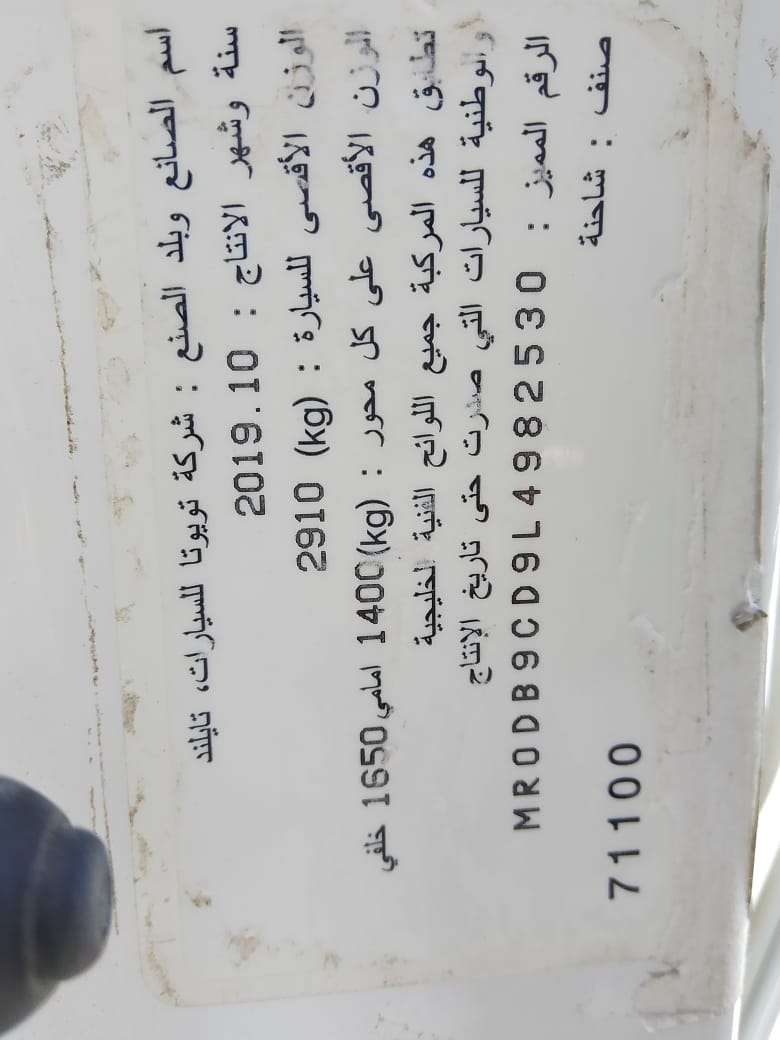 اسم الصانع وبلد الصنع : شركة تويوتا للسيارات، تايلند
سنة وشهر الانتاج : 2019.10
الوزن الأقصى للسيارة : (kg) 2910
الوزن الأقصى على كل محور : (kg) 1400 امامي 1650 خلفي
تطابق هذه المركبة جميع اللوائح الفنية الخليجية
والوطنية للسيارات التي صدرت حتى تاريخ الإنتاج
الرقم المميز : MR0DB9CD9L4982530
صنف : شاحنة
71100